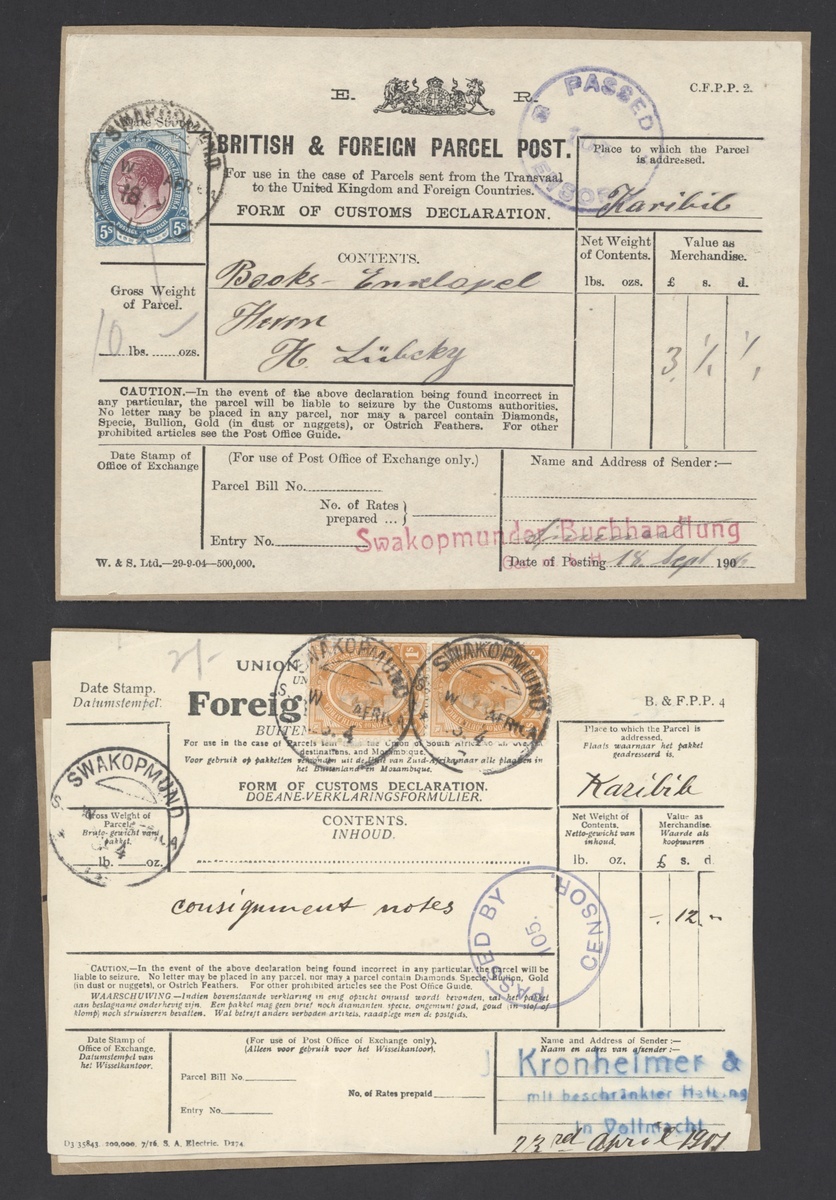 E. R.
C.F.P.P. 2.
SWAKOPMUND
PASSED
BRITISH & FOREIGN PARCEL POST.
For use in the case of Parcels sent from the Transvaal
to the United Kingdom and Foreign Countries.
FORM OF CUSTOMS DECLARATION.
Place to which the Parcel
is addressed.
Karibib
5s 5s
Gross Weight
of Parcel.
10
lbs. ozs.
CONTENTS.
Books
Herrn
H.
Net Weight
of Contents.
lbs. ozs.
Value as
Merchandise.
£ s. d.
CAUTION.—In the event of the above declaration being found incorrect in
any particular, the parcel will be liable to seizure by the Customs authorities.
No letter may be placed in any parcel, nor may a parcel contain Diamonds,
Specie, Bullion, Gold (in dust or nuggets), or Ostrich Feathers. For other
prohibited articles see the Post Office Guide.
Date Stamp of
Office of Exchange
(For use of Post Office of Exchange only.)
Parcel Bill No.
No. of Rates
prepared ...
Entry No.
Name and Address of Sender:—
Swakopmunder Buchhandlung
Date of Posting 18 Sept 190
W. & S. Ltd.—29-9-04—500,000.
2/-
Date Stamp.
Datumstempel.
UNION
Foreig
BUITEN
SWAKOPMUND
SWAKOPMUND
B. & F.P.P. 4
For use in the case of Parcels
destinations, and Mozambique.
Voor gebruik op pakketten verzonden uit de Unie van Zuid-Afrika naar alle plaatsen in
het Buitenland en Mozambique.
FORM OF CUSTOMS DECLARATION.
DOEANE-VERKLARINGSFORMULIER.
Place to which the Parcel is
addressed.
Plaats waarnaar het pakket
geadresseerd is.
Karibib
SWAKOPMUND
Gross Weight of
Parcel.
Bruto-gewicht van
pakket.
lb. oz.
CONTENTS.
INHOUD.
consignment notes
Net Weight of
Contents.
Netto-gewicht van
inhoud.
lb. oz.
Value as
Merchandise.
Waarde als
koopwaren
£ s. d.
12
PASSED BY
CENSOR.
105.
CAUTION.—In the event of the above declaration being found incorrect in any particular, the parcel will be
liable to seizure. No letter may be placed in any parcel, nor may a parcel contain Diamonds, Specie, Bullion, Gold
(in dust or nuggets), or Ostrich Feathers. For other prohibited articles see the Post Office Guide.
WAARSCHUWING—Indien bovenstaande verklaring in enig opzicht onjuist wordt bevonden, zal het pakket
aan beslagname onderhevig zijn. Een pakket mag geen brief noch diamanten specie, ongemunt goud, goud (in stof of
klomp) noch struisveren bevatten. Wat betreft andere verboden artikels, raadplege men de postgids.
Date Stamp of
Office of Exchange.
Datumstempel van
het Wisselkantoor.
(For use of Post Office of Exchange only).
(Alleen voor gebruik voor het Wisselkantoor).
Parcel Bill No.
No. of Rates prepaid
Entry No.
Name and Address of Sender:—
Naam en adres van afzender:—
Kronheimer &
mit beschränkter Haftung
in Vollmacht
23rd April 190
D3 35843. 200,000. 7/16. S. A. Electric. D274.